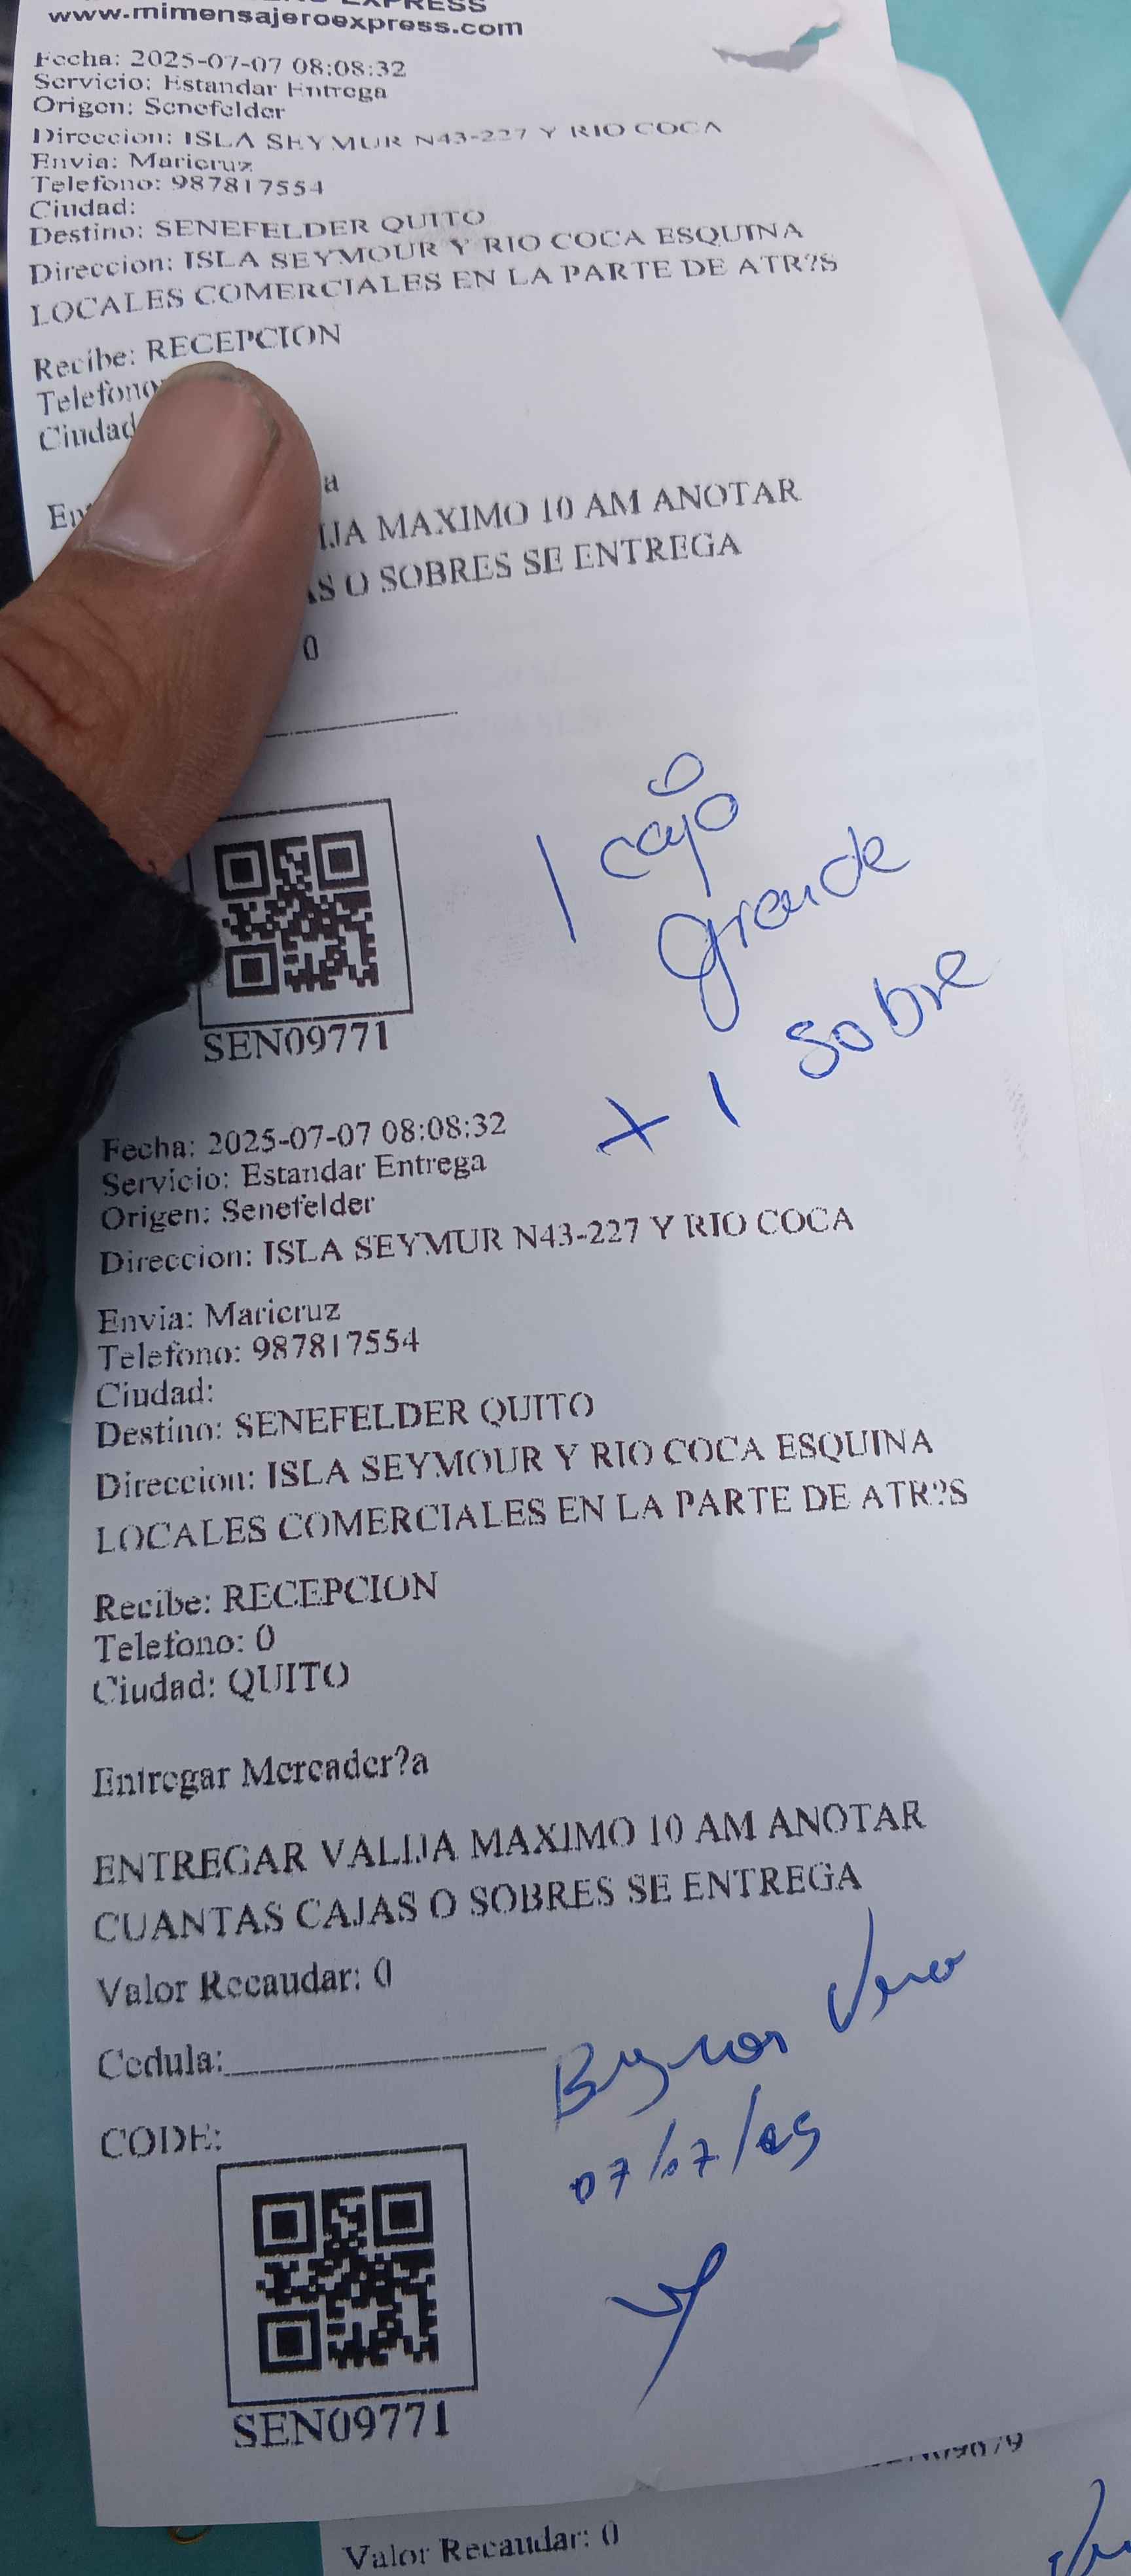 EXPRESS
www.mimensajeroexpress.com
Fecha: 2025-07-07 08:08:32
Servicio: Estandar Entrega
Origen: Senefelder
Direccion: ISLA SEYMUR N43-227 Y RIO COCA
Envia: Maricruz
Telefono: 987817554
Ciudad:
Destino: SENEFELDER QUITO
Direccion: ISLA SEYMOUR Y RIO COCA ESQUINA
LOCALES COMERCIALES EN LA PARTE DE ATR?S
Recibe: RECEPCION
Telefono
Ciudad
MAXIMO 10 AM ANOTAR
O SOBRES SE ENTREGA
0
1 caja
grande
+ 1 sobre
SEN09771
Fecha: 2025-07-07 08:08:32
Servicio: Estandar Entrega
Origen: Senefelder
Direccion: ISLA SEYMUR N43-227 Y RIO COCA
Envia: Maricruz
Telefono: 987817554
Ciudad:
Destino: SENEFELDER QUITO
Direccion: ISLA SEYMOUR Y RIO COCA ESQUINA
LOCALES COMERCIALES EN LA PARTE DE ATR?S
Recibe: RECEPCION
Telefono: 0
Ciudad: QUITO
Entregar Mercader?a
ENTREGAR VALIJA MAXIMO 10 AM ANOTAR
CUANTAS CAJAS O SOBRES SE ENTREGA
Valor Recaudar: 0
Cedula:
Vera
07/07/25
CODE:
SEN09771
Valor Recaudar: 0